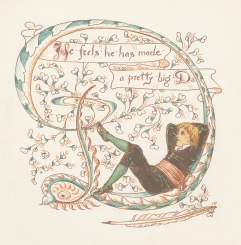 He feels he has made
a pretty big D